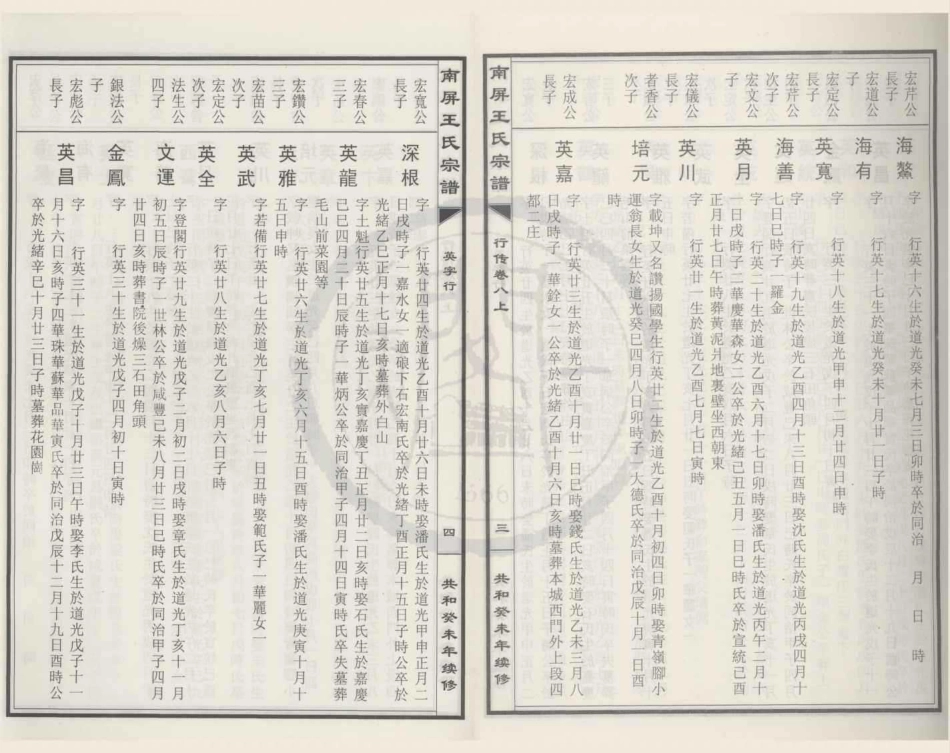 宏芹公
子
海鰲
字　行英十六生於道光癸未七月三日卯時卒於同治　月　日　時
宏道公
子
海有
字　行英十七生於道光癸未十月廿一日子時
宏定公
長子
英寬
字　行英十八生於道光甲申十二月廿四日申時
宏芹公
次子
海善
字　行英十九生於道光乙酉四月十三日酉時娶沈氏生於道光丙戌四月十
七日巳時子一羅金
宏文公
子
英月
字　行英二十生於道光乙酉六月十七日卯時娶潘氏生於道光丙午二月十
一日戌時子二華慶華森女二公卒於光緒己丑五月一日巳時氏卒於宣統己酉
正月廿七日午時葬黃泥爿地裏壁坐西朝東
宏儀公
長子
英川
字　行英廿一生於道光乙酉七月七日寅時
者香公
次子
培元
字載坤又名讚揚國學生行英廿二生於道光乙酉十月初四日卯時娶青嶺腳小
運翁長女生於道光癸巳四月八日卯時子一大德氏卒於同治戊辰十月一日酉
時
宏成公
長子
英嘉
字　行英廿三生於道光乙酉十月廿一日巳時娶錢氏生於道光乙未三月八
日戌時子一華銓女一公卒於光緒乙酉十月六日亥時墓葬本城西門外上段四
都二庄
南屏王氏宗譜
行传卷八上
三
共和癸未年续修
南屏王氏宗譜
英字行
四
共和癸未年续修
宏寬公
長子
深根
字　行英廿四生於道光乙酉十月廿六日未時娶潘氏生於道光甲申正月二
日戌時子一嘉水女一適硠下石宏南氏卒於光緒丁酉正月十五日子時公卒於
光緒乙巳正月十七日亥時墓葬外白山
宏春公
三子
英龍
字土魁行英廿五生於道光丁亥實嘉慶丁丑正月廿二日亥時娶石氏生於嘉慶
己巳四月二十日辰時子一華炳公卒於同治甲子四月十四日寅時氏卒失墓葬
毛山前菜園等
宏鑽公
三子
英雅
字　行英廿六生於道光丁亥六月十五日酉時娶潘氏生於道光庚寅十月十
五日申時
宏苗公
次子
英武
字若備行英廿七生於道光丁亥七月廿一日丑時娶範氏子一華麗女一
宏定公
次子
英全
字　行英廿八生於道光乙亥八月六日子時
法生公
四子
文運
字登閣行英廿九生於道光戊子二月初二日戌時娶章氏生於道光丁亥十一月
初五日辰時子一世林公卒於咸豐己未八月廿三日巳時氏卒於同治甲子四月
廿四日亥時葬書院後燥三石田角頭
銀法公
子
金鳳
字　行英三十生於道光戊子四月初十日寅時
宏彪公
長子
英昌
字　行英三十一生於道光戊子十月廿三日午時娶李氏生於道光戊子十一
月十六日亥時子四華珠華蘇華品華寅氏卒於同治戊辰十二月十九日酉時公
卒於光緒辛巳十月廿三日子時墓葬花園崗